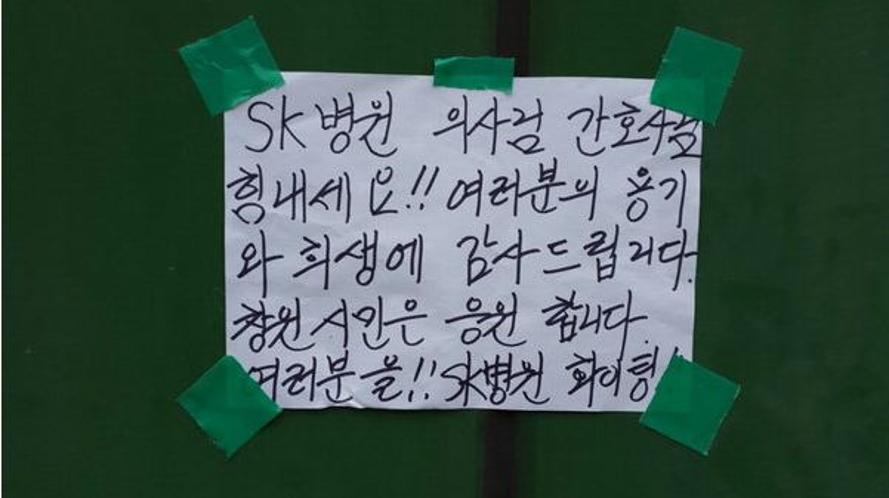 SK병원 의사님 간호사님
힘내세요!! 여러분의 용기
와 희생에 감사드립니다.
창원시민은 응원 합니다.
여러분을!! SK병원 화이팅!